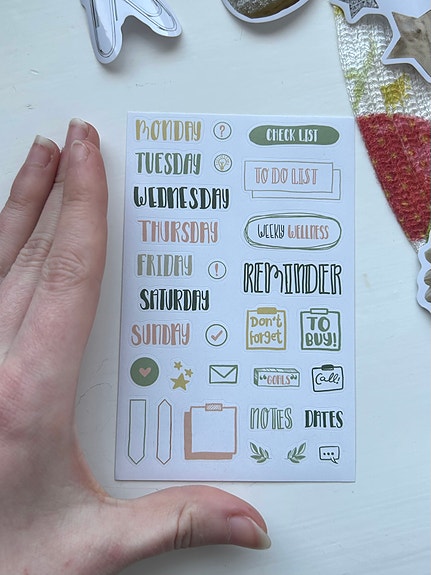 MONDAY
?
CHECK LIST
TUESDAY
TO DO LIST
WEDNESDAY
THURSDAY
WEEKLY WELLNESS
FRIDAY
!
REMINDER
SATURDAY
SUNDAY
Don't
forget
TO
BUY!
"GOALS"
Call!
NOTES
DATES